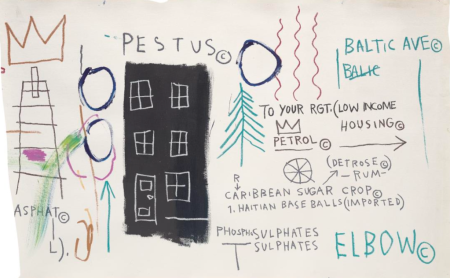 PESTUS©
BALTIC AVE©
BALTIC
TO YOUR RGT. (LOW INCOME
HOUSING©
PETROL ©
(DETROSE©)
-RUM-
R
CARIBBEAN SUGAR CROP©
1. HAITIAN BASE BALLS (IMPORTED)
ASPHAT©
L).
PHOSPHSULPHATES
SULPHATES
ELBOW©